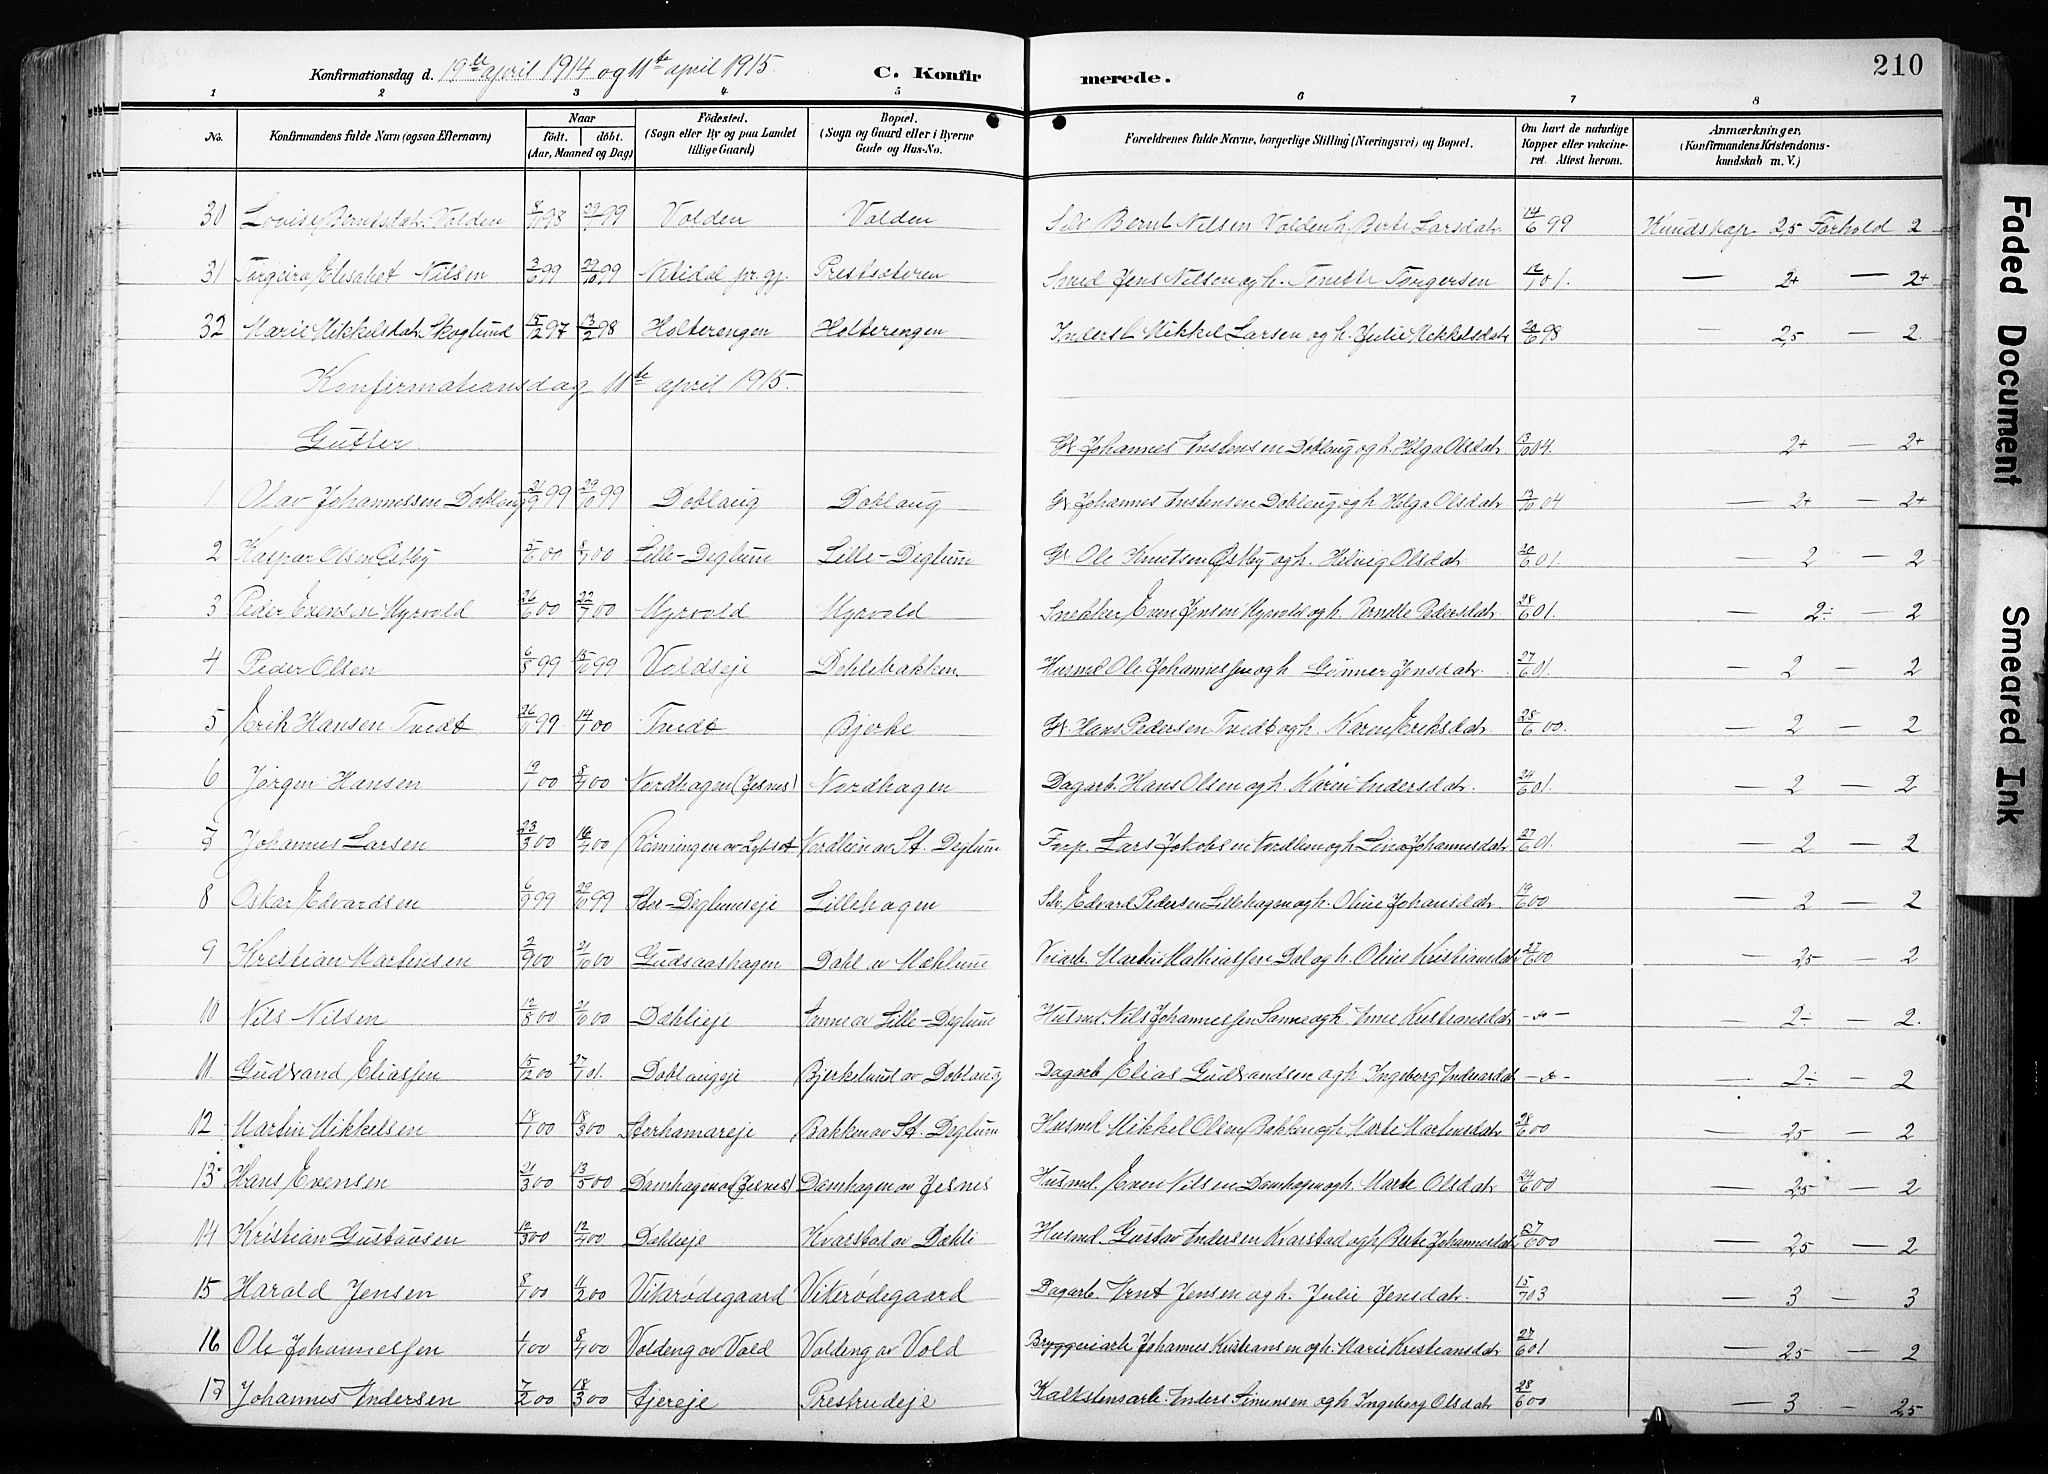 Konfirmationsdag d. 19de april 1914 og 11te april 1915. C. Konfirmerede. 210
1 2 3 4 5 6 7 8
No. Konfirmandens fulde Navn (ogsaa Efternavn) Naar født. døbt. (Aar, Maaned og Dag) Fødested. (Sogn eller By og paa Landet tillige Gaard) Bopæl. (Sogn og Gaard eller i Byerne Gade og Hus-No. Forældrenes fulde Navne, borgerlige Stilling (Næringsvei) og Bopæl. Om havt de naturlige Kopper eller vakcineret. Attest herom. Anmærkninger, (Konfirmandens Kristendomskundskab m. V.)
30 Lovise Berntsdatr. Volden 8/1 98 29/1 99 Volden Volden Selv Bernt Nilsen Volden h. Berte Larsdatr 14/6 99 Kundskap 2,5 Forhold 2
31 Torgeira Elisabet Nilsen 3/6 99 29/10 99 Nitidal pr. gj. Prestsæteren Smed Jens Nilsen og h. Tonette Torgersen 12/7 01. — 2+ — 2+
32 Marie Mikkelsdatr Skoglund 15/12 97 13/2 98 Holterengen Holterengen Inderst Mikkel Larsen og h. Julie Mikkelsdatr 20/6 98 — 2,5 — 2.
Konfirmationsdag 11te april 1915.
Gutter. G. Johannes Instensen Doblaug og h. Helga Olsdatr 13/10 04. — 2+ — 2+
1 Olav Johannessen Doblaug 21/9 99 29/10 99 Doblaug Doblaug G. Johannes Instensen Doblaug og h Helga Olsdatr 13/10 04 — 2+ — 2+
2 Kaspar Olsen Østby 5/6 00 8/7 00 Lille-Deglum Lille-Deglum G. Ole Knutsen Østby og h. Helvig Olsdatr. 20/6 01. — 2 — 2
3 Peder Evensen Myrvold 26/6 00 22/7 00 Myrvold Myrvold Snekker Even Jensen Myrvold og h. Pernille Pedersdatr 28/6 01. — 2÷ — 2
4 Peder Olsen 6/8 99 15/10 99 Voldseje Dehlibakken. Husmd Ole Johannessen og h Gunner Jensdatr. 27/6 01. — 2 — 2
5 Erik Hansen Tvedt 26/11 99 14/1 00 Tvedt Bjerke G. Hans Pedersen Tvedt og h. Karen Eriksdatr 28/6 00. — 2 — 2
6 Jørgen Hansen 19/1 00 8/4 00 Nordhagen (Jesnes) Nordhagen Dagarb. Hans Olsen og h. Karen Andersdatr. 24/6 01. — 2 — 2
7 Johannes Larsen 23/3 00 16/4 00 Rønningen av Lybset Nordlien av St. Deglum Forp. Lars Jakobsen Nordlien og h Lina Johannesdatr 27/6 01. — 2 — 2
8 Oskar Edvardsen 6/9 99 29/10 99 Stor-Deglumseje Lillehagen Slv. Edvard Pedersen Lillehagen og h. Oline Johansdatr. 19/6 00 — 2 — 2
9 Kristian Martinsen 2/9 00 21/10 00 Gudsaashagen Dahl av Mæhlum Veiarb. Martin Mathiassen Dal og h. Oline Kristiansdatr 27/6 00 — 2,5 — 2
10 Nils Nilsen 12/8 00 21/10 00 Dæhlieje Sanne av Lille-Deglum Husmd. Nils Johannessen Sanne og h. Anne Kristiansdatr -„- — 2÷ — 2.
11 Gudbrand Eliassen 15/12 00 27/1 01. Doblaugeje Bjerkelund av Doblaug Dagarb Elias Gudbrandsen og h Ingeborg Andreasdatr -„- — 2÷ — 2
12 Martin Mikkelsen 18/1 00 18/3 00 Storhamareje Bakken av St. Deglum Husmd Mikkel Olsen Bakken og h. Marte Martinsdatr 28/6 00 — 2,5 — 2
13 Hans Evensen 21/3 00 13/5 00 Damhagen av (Jesnes) Damhagen av Jesnes Husmd. Even Nilsen Damhagen og h. Marte Olsdatr 24/6 00 — 2,5 — 2
14 Kristian Gustavsen 12/3 00 12/4 00 Dahlieje Kvarstad av Dæhli Husmd Gustav Andersen Kvarstad og h Berte Johannesdatr 27/6 00 — 2,5 — 2
15 Harald Jensen 8/1 00 11/2 00 Vikerødegaard Vikerødegaard Dagarb. Arnt Jensen og h. Julie Jensdatr. 15/7 03 — 3 — 3
16 Ole Johannessen 1/1 00 8/4 00 Voldeng av Vold Voldeng av Vold Bryggeriarb Johannes Kristiansen og h. Marie Kristiansdatr 27/6 01 — 2,5 — 2
17 Johannes Andersen 7/2 00 18/3 00 Tjereje Prestrudeje Kalkstensarb. Anders Simensen og h Ingeborg Olsdatr 28/6 00 — 3 — 2,5
Faded Document
Smeared Ink